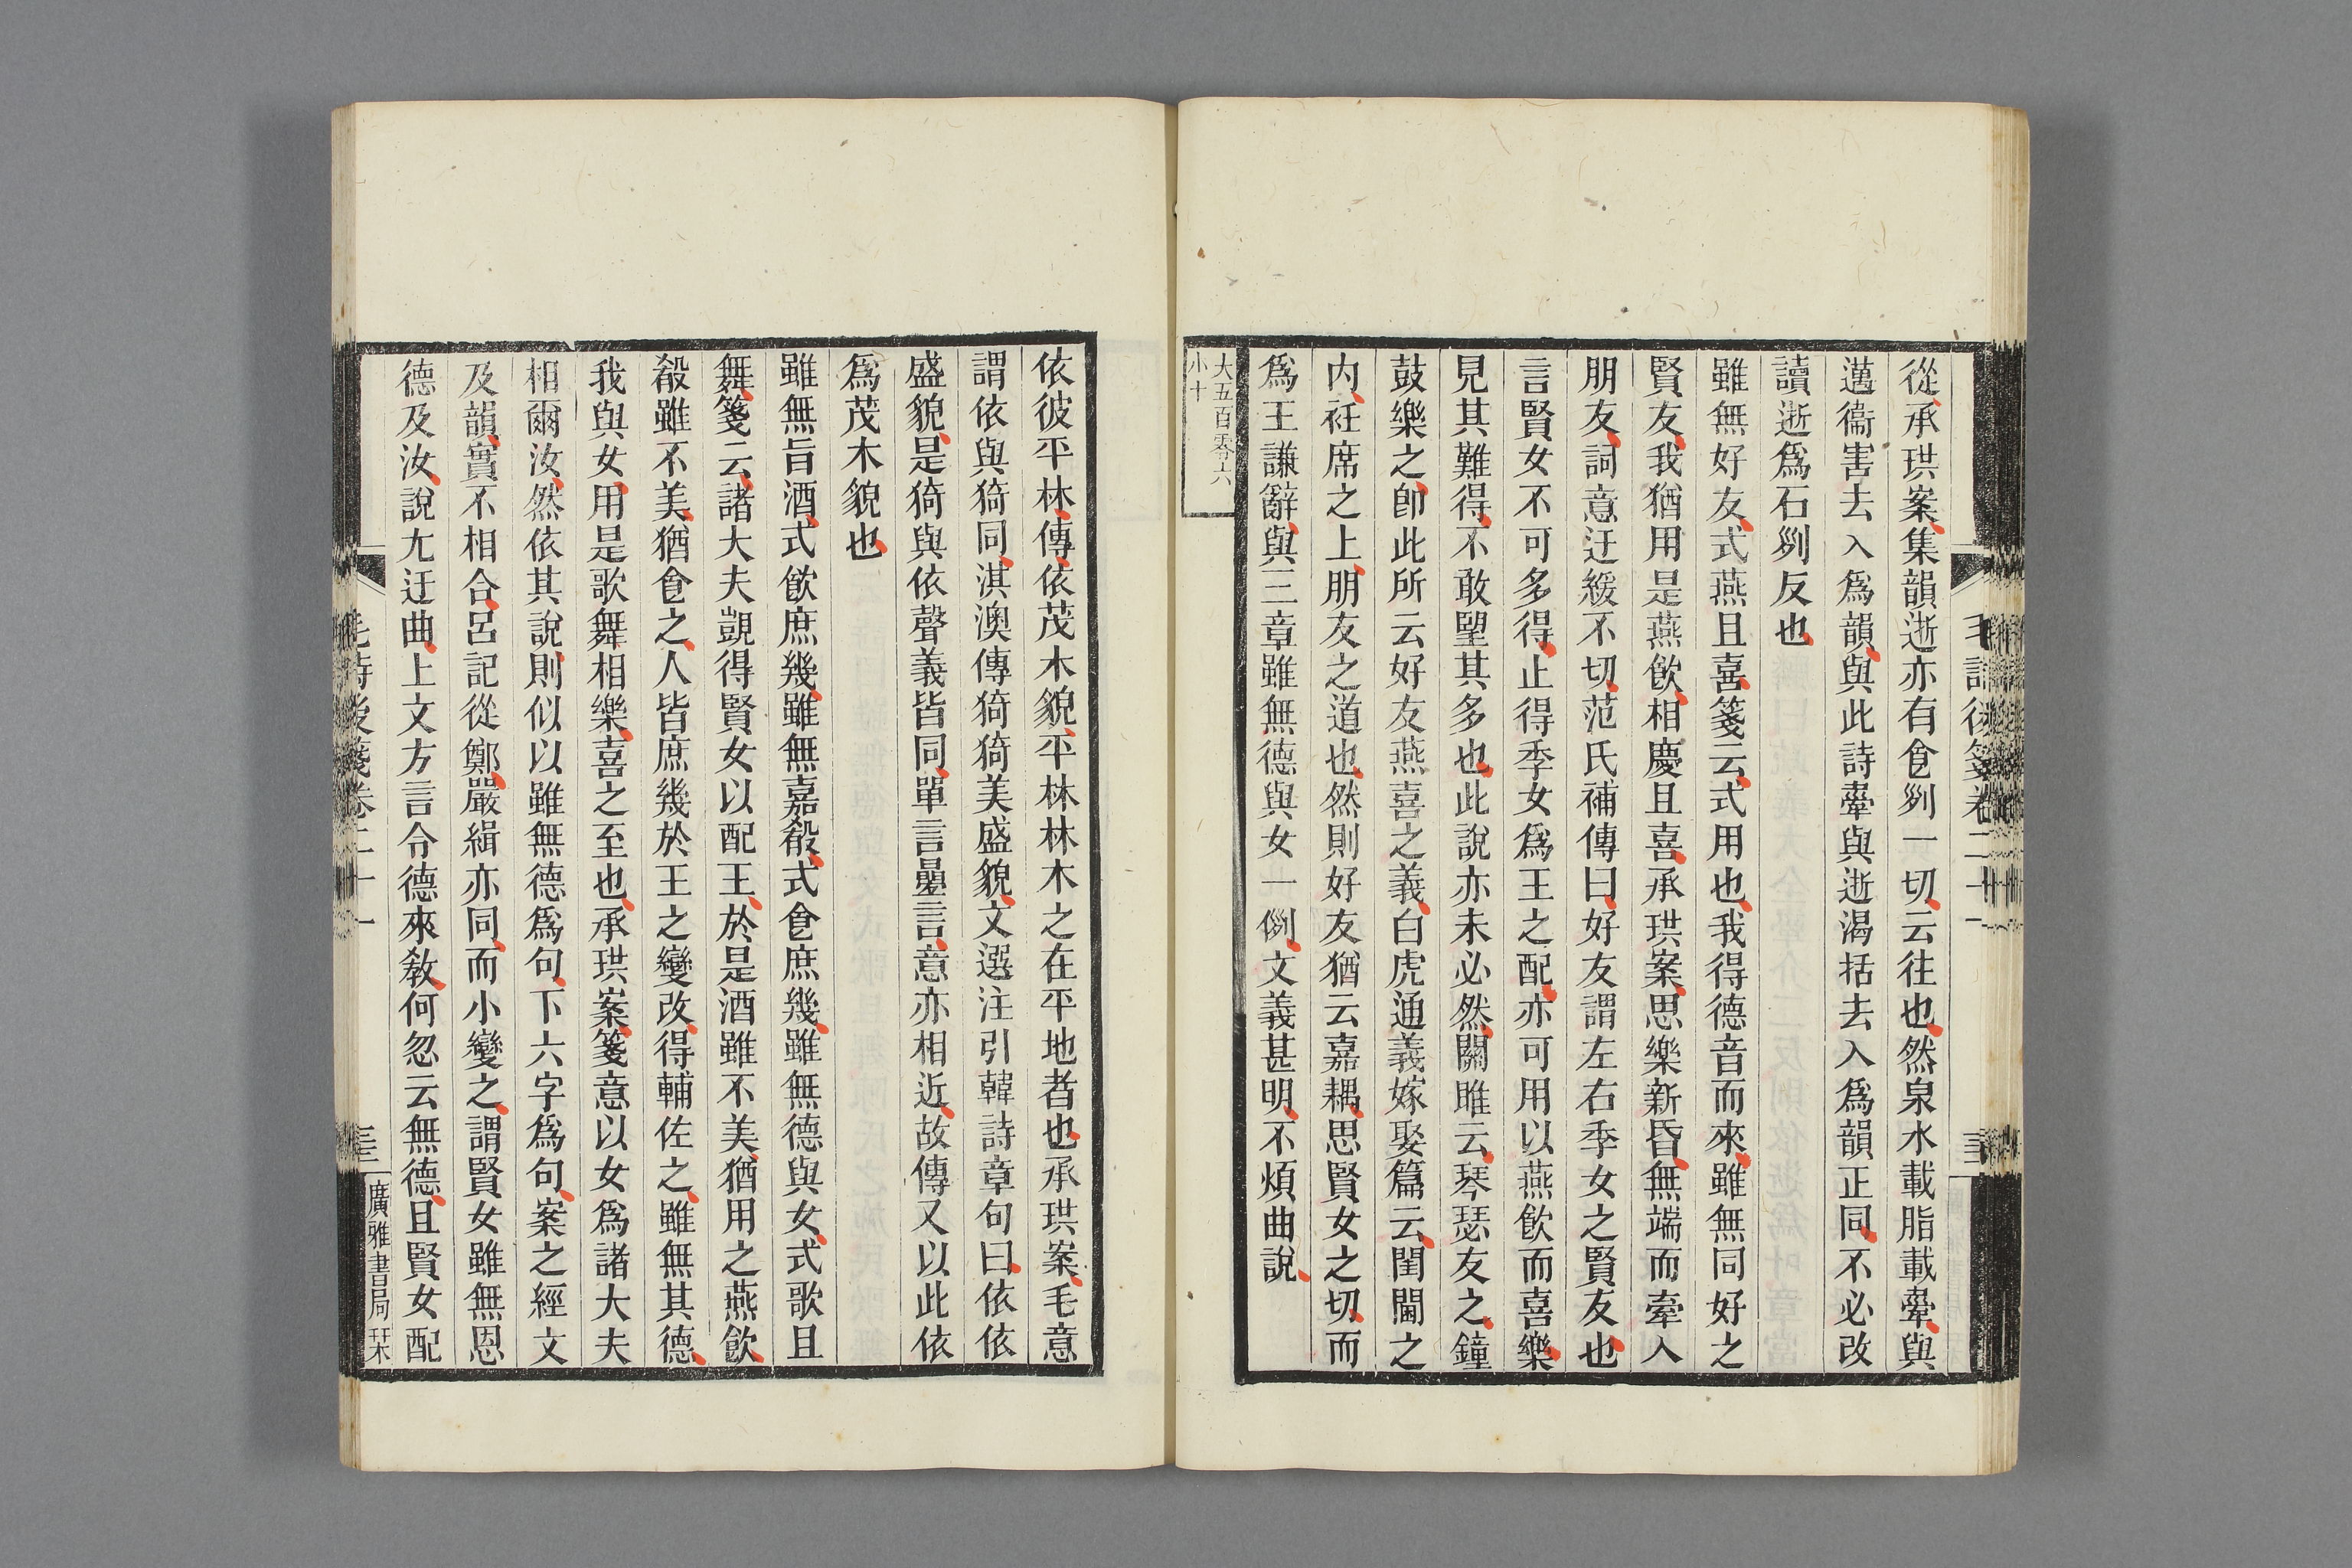 從承珙案集韻逝亦有食列一切云往也然泉水載脂載舝與
邁衞害去入爲韻與此詩舝與逝渴括去入爲韻正同不必改
讀逝爲石列反也
雖無好友式燕且喜箋云式用也我得德音而來雖無同好之
賢友我猶用是燕飮相慶且喜承珙案思樂新昏無端而牽入
朋友詞意迂緩不切范氏補傳曰好友謂左右季女之賢友也
言賢女不可多得止得季女爲王之配亦可用以燕飮而喜樂
見其難得不敢望其多也此說亦未必然關雎云琴瑟友之鐘
鼓樂之卽此所云好友燕喜之義白虎通義嫁娶篇云閨閫之
內衽席之上朋友之道也然則好友猶云嘉耦思賢女之切而
爲王謙辭與三章雖無德與女一例文義甚明不煩曲說
大五百零六
小十
毛詩後箋卷二十一
依彼平林傳依茂木貌平林林木之在平地者也承珙案毛意
謂依與猗同淇澳傳猗猗美盛貌文選注引韓詩章句曰依依
盛貌是猗與依聲義皆同單言㬪言意亦相近故傳又以此依
爲茂木貌也
雖無旨酒式飮庶幾雖無嘉殽式食庶幾雖無德與女式歌且
舞箋云諸大夫覬得賢女以配王於是酒雖不美猶用之燕飮
殽雖不美猶食之人皆庶幾於王之變改得輔佐之雖無其德
我與女用是歌舞相樂喜之至也承珙案箋意以女爲諸大夫
相爾汝然依其說則似以雖無德爲句下六字爲句案之經文
及韻實不相合呂記從鄭嚴緝亦同而小變之謂賢女雖無恩
德及汝說尢迂曲上文方言令德來敎何忽云無德且賢女配
毛詩後箋卷二十一
廣雅書局栞